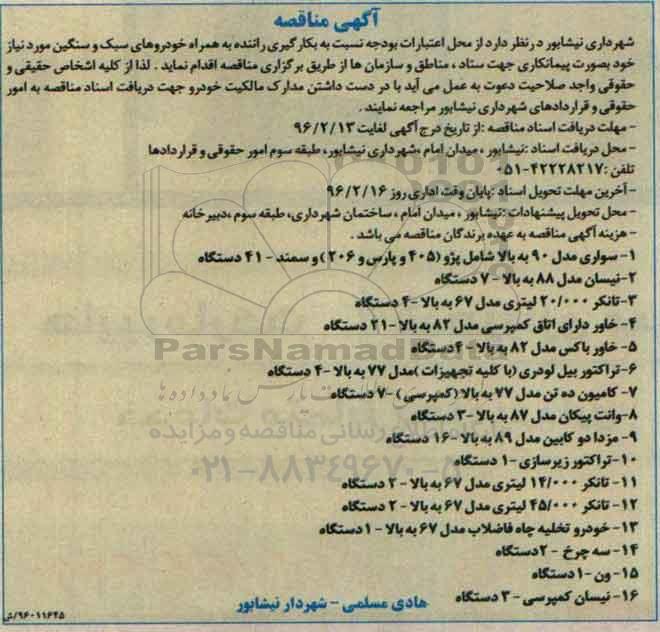 آگهی مناقصه
شهرداری نیشابور در نظر دارد از محل اعتبارات بودجه نسبت به بکارگیری راننده به همراه خودروهای سبک و سنگین مورد نیاز
خود بصورت پیمانکاری جهت ستاد ، مناطق و سازمان ها از طریق برگزاری مناقصه اقدام نماید . لذا از کلیه اشخاص حقیقی و
حقوقی واجد صلاحیت دعوت به عمل می آید با در دست داشتن مدارک مالکیت خودرو جهت دریافت اسناد مناقصه به امور
حقوقی و قراردادهای شهرداری نیشابور مراجعه نمایند .
- مهلت دریافت اسناد مناقصه :از تاریخ درج آگهی لغایت ۹۶/۲/۱۳
- محل دریافت اسناد :نیشابور ، میدان امام ،شهرداری نیشابور، طبقه سوم امور حقوقی و قراردادها
تلفن :۴۲۲۲۸۲۱۷-۰۵۱
- آخرین مهلت تحویل اسناد :پایان وقت اداری روز ۹۶/۲/۱۶
- محل تحویل پیشنهادات :نیشابور ، میدان امام ، ساختمان شهرداری، طبقه سوم ،دبیرخانه
- هزینه آگهی مناقصه به عهده برندگان مناقصه می باشد .
۱- سواری مدل ۹۰ به بالا شامل پژو (۴۰۵ و پارس و ۲۰۶ ) و سمند - ۴۱ دستگاه
۲-نیسان مدل ۸۸ به بالا - ۷ دستگاه
۳-تانکر ۲۰/۰۰۰ لیتری مدل ۶۷ به بالا -۴ دستگاه
۴- خاور دارای اتاق کمپرسی مدل ۸۲ به بالا -۲۱ دستگاه
۵- خاور باکس مدل ۸۲ به بالا -۴ دستگاه
ParsNamadData
۶-تراکتور بیل لودری (با کلیه تجهیزات )مدل ۷۷ به بالا -۴ دستگاه
۷- کامیون ده تن مدل ۷۷ به بالا (کمپرسی ) -۷ دستگاه
پارس نماد داده ها
۸-وانت پیکان مدل ۸۷ به بالا -۳ دستگاه
اطلاع رسانی مناقصه و مزایده
۹- مزدا دو کابین مدل ۸۹ به بالا -۱۶ دستگاه
۱۰-تراکتور زیرسازی -۱ دستگاه
۰۲۱-۸۸۳۴۹۶۷۰-۵
۱۱- تانکر ۱۴/۰۰۰ لیتری مدل ۶۷ به بالا - ۲ دستگاه
۱۲- تانکر ۴۵/۰۰۰ لیتری مدل ۶۷ به بالا - ۲ دستگاه
۱۳- خودرو تخلیه چاه فاضلاب مدل ۶۷ به بالا - ۱ دستگاه
۱۴- سه چرخ - ۲دستگاه
۱۵- ون -۱ دستگاه
۱۶- نیسان کمپرسی - ۳ دستگاه
هادی مسلمی - شهردار نیشابور
۹۶۰۱۱۶۴۵/ش